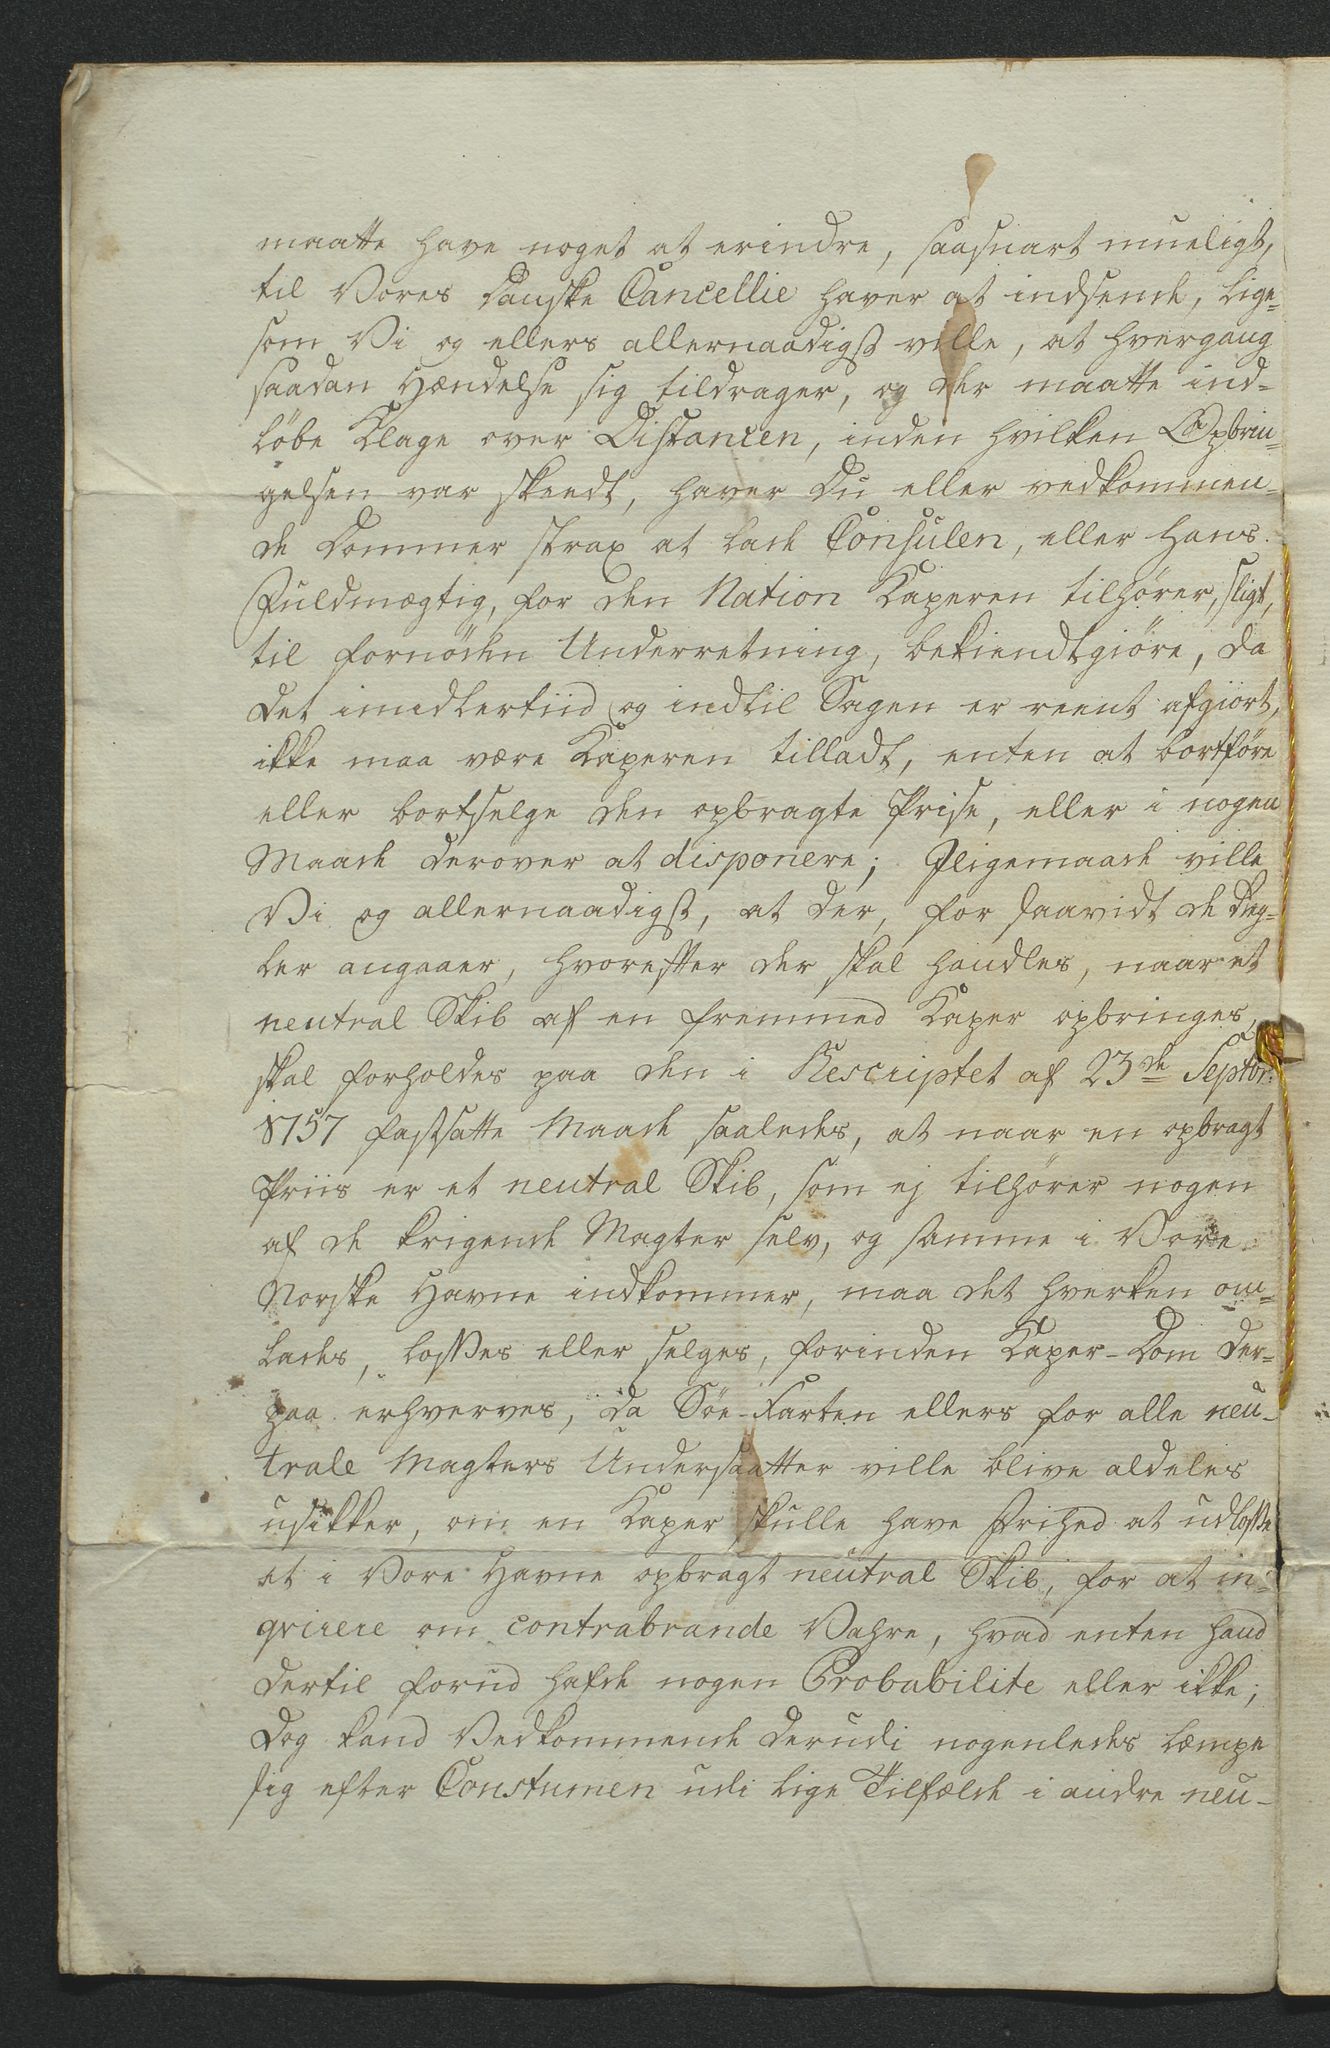 maatte have noget at erindre, saasnart mueligt,
til Vores Danske Cancellie haver at indsende, lige-
som Vi og ellers allernaadigst ville, at hvergang
saadan Hændelse sig tildrager, og der maatte ind-
løbe Klage over Distancen, inden hvilken Opbrin-
gelsen var skeedt, haver Du eller vedkommen-
de Dommer strax at lade Consulen, eller hans
Fuldmægtig, for den Nation Kaperen tilhører, sligt,
til fornøden Underretning, bekiendtgiøre, da
det imidlertiid og indtil Sagen er reent afgiort,
ikke maa være Kaperen tilladt, enten at bortføre
eller bortselge den opbragte Prise, eller i nogen
Maade derover at disponere; Iligemaade ville
Vi og allernaadigst, at der, for saavidt de Reg-
ler angaaer, hvorefter der skal handles, naar et
neutral Skib af en fremmed Kaper opbringes,
skal forholdes paa den i Rescriptet af 23de Septbr:
1757 fastsatte Maade saaledes, at naar en opbragt
Priis er et neutral Skib, som ej tilhører nogen
af de krigende Magter selv, og samme i Vore
Norske Havne indkommer, maa det hverken om-
lades, losses eller selges, forinden Kaper-Dom der-
paa erhverves, da Søe-Farten ellers for alle neu-
trale Magters Undersaatter ville blive aldeles
usikker, om en Kaper skulle have Frihed at udlosse
et i Vore Havne opbragt neutral Skib, for at in-
qvirere om contrabrande Vahre, hvad enten hand
dertil forud hafde nogen Probabilite eller ikke;
Dog kand Vedkommende derudi nogenledes læmpe
sig efter Constumen udi lige Tilfælde i andre neu-